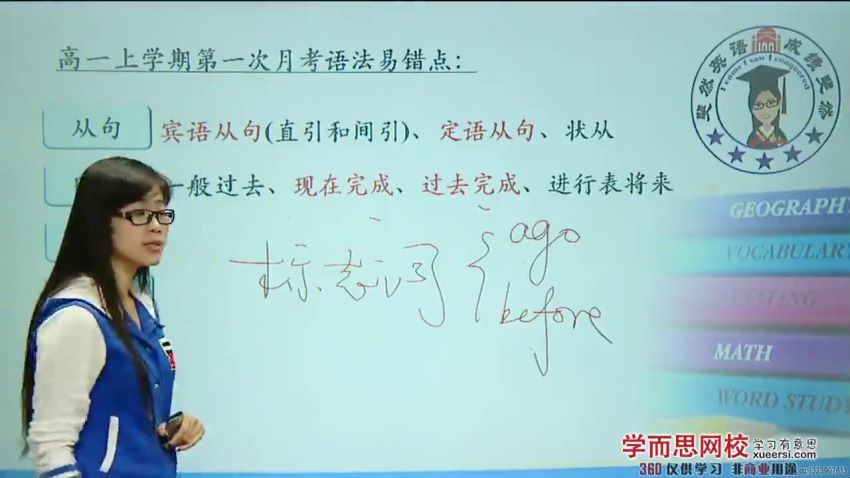 高一上学期第一次月考语法易错点:
从句
宾语从句(直引和间引)、定语从句、状从
一般过去、现在完成、过去完成、进行表将来
标志词
ago
before
I came I saw I conquered
GEOGRAPHY
VOCABULARY
MATH
WORD STUDY
学而思网校
学习有意思
xueersi.com
360仅供学习 非商业用途